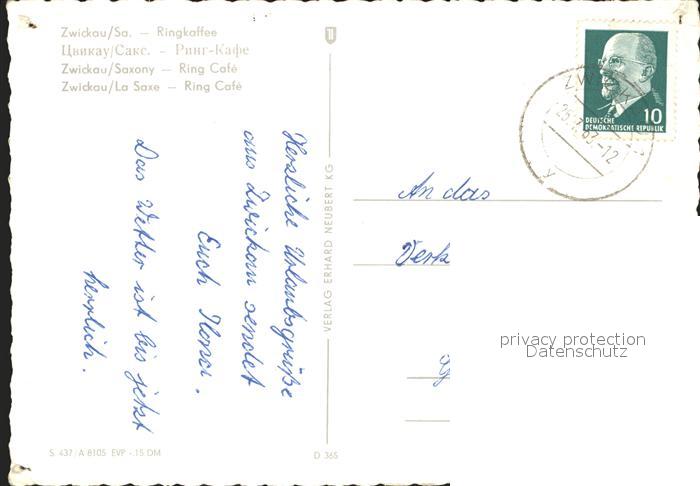 Zwickau/Sa. — Ringkaffee
Цвикау/Сакс. - Ринг-Кафе
Zwickau/Saxony — Ring Café
Zwickau/La Saxe — Ring Café
Herzliche Urlaubsgrüße
aus Zwickau sendet
Euch Ilona.
Das Wetter ist bis jetzt
herrlich.
S 437/A 8105 EVP -.15 DM
VERLAG ERHARD NEUBERT KG
D 365
10
DEUTSCHE
DEMOKRATISCHE REPUBLIK
An das
Verk
privacy protection
Datenschutz